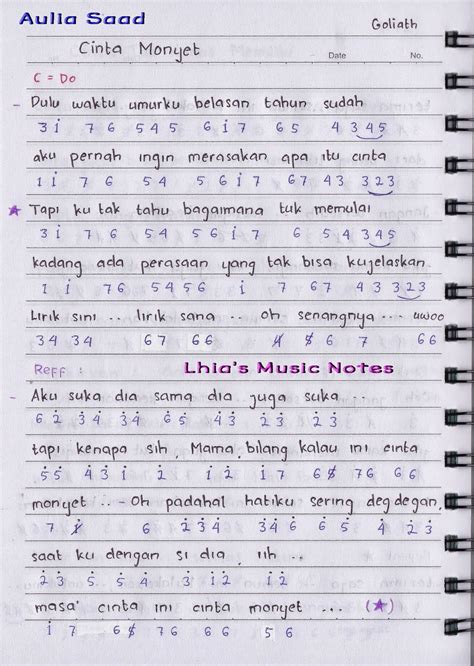 Aulia Saad
Goliath
Cinta Monyet
Date No.
C = Do
- Dulu waktu umurku belasan tahun sudah
3 i 7 6 5 4 5 6 i 7 6 5 4 3 4 5
aku pernah ingin merasakan apa itu cinta
1 i 7 6 5 4 5 6 i 7 6 7 4 3 3 2 3
★ Tapi ku tak tahu bagaimana tuk memulai
3 i 7 6 5 4 5 6 i 7 6 5 4 3 4 5
kadang ada perasaan yang tak bisa kujelaskan
1 i 7 6 5 4 5 6 i 7 6 7 4 3 3 2 3
Lirik sini .. lirik sana .. oh senangnya ... uwoo
3 4 3 4 6 7 6 6 6 7 6 6
Reff :
Lhia's Music Notes
- Aku suka dia sama dia juga suka ..
tapi kenapa sih, Mama bilang kalau ini cinta
monyet ... - Oh padahal hatiku sering deg degan,
saat ku dengan si dia, iih ...
masa' cinta ini cinta monyet .... (★)